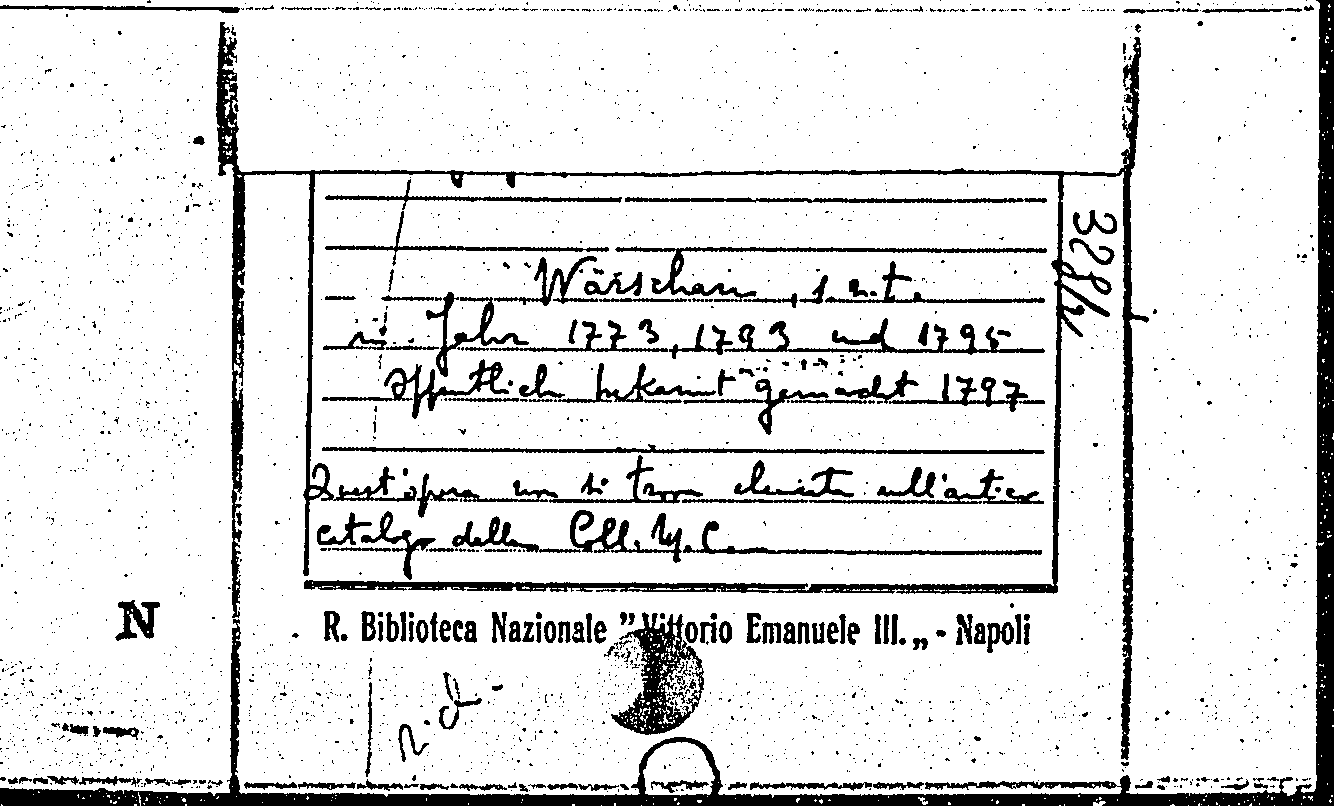 Warschau, s.n.t.
in Jahr 1773, 1793 und 1795
öffentlich bekannt gemacht 1797
Quest'opera non si trova elencata nell'antico
catalogo della Coll. M. C.
328/2
N
R. Biblioteca Nazionale "Vittorio Emanuele III. „ - Napoli